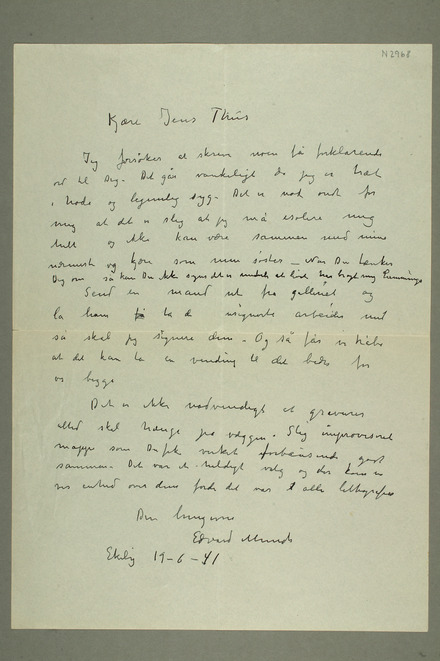 N 2968
Kjære Jens Thiis
Jeg forsøker at skrive noen få forklarende
ord til Dig. Det går vanskeligt da jeg er træt
i hode og legemlig syg. Det er nok ondt for
mig at det er slig at jeg må isolere mig
helt og ikke kan være sammen med mine
nærmeste og kjære som min søster – Når Du tænker
Dig om så kan Du ikke synes det er
Send en mand ut fra galleriet og
la ham få ta de usignerte arbeider med
så skal jeg signere dem. Og så får vi håbe
at det kan ta en vending til det bedre for
os begge
Det er ikke nødvendigt at gravurer
altid skal hænge på væggen. Slig improviseret
mappe som Du fik virket forbausende godt
sammen. Det var et heldigt valg og der kom en
vis enhed over dem fordi det var alle lithografier
Din hengivne
Edvard Munch
Ekely 19-6-41